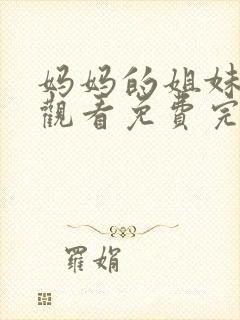 妈妈的姐妹
觀看免費完
羅娟